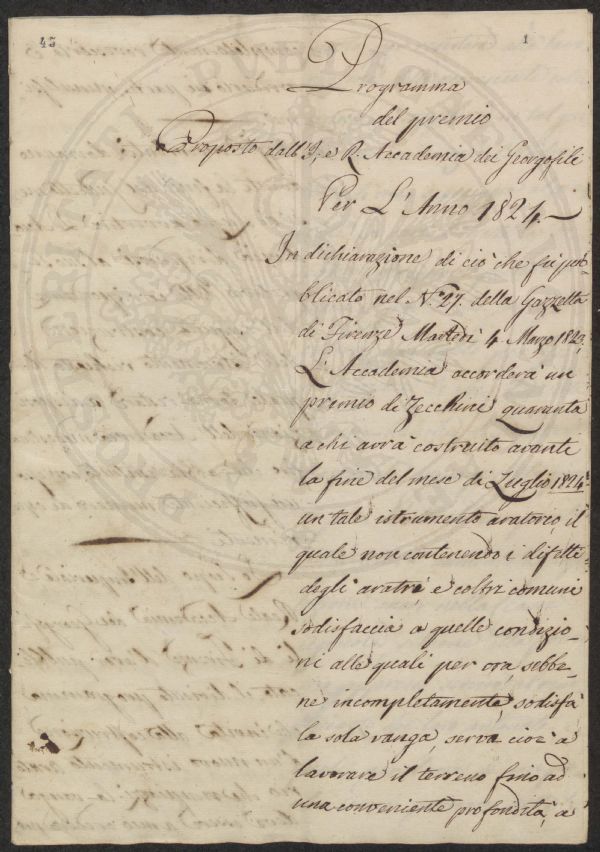 45
1
Programma
del premio
Proposto dall'I. e R. Accademia dei Georgofili
Per L'Anno 1824.
In dichiarazione di ciò che fù pub-
blicato nel N.º 27. della Gazzetta
di Firenze Martedì 4. Marzo 1823.
L'Accademia accorderà un
premio di Zecchini quaranta
a chi avrà costruito avanti
la fine del mese di Luglio 1824
un tale istrumento aratorio, il
quale non contenendo i difetti
degli aratri e coltri comuni
sodisfaccia a quelle condizio-
ni alle quali per ora, sebbe-
ne incompletamente, sodisfà
la sola vanga, serva cioè a
lavorare il terreno fino ad
una conveniente profondità, a